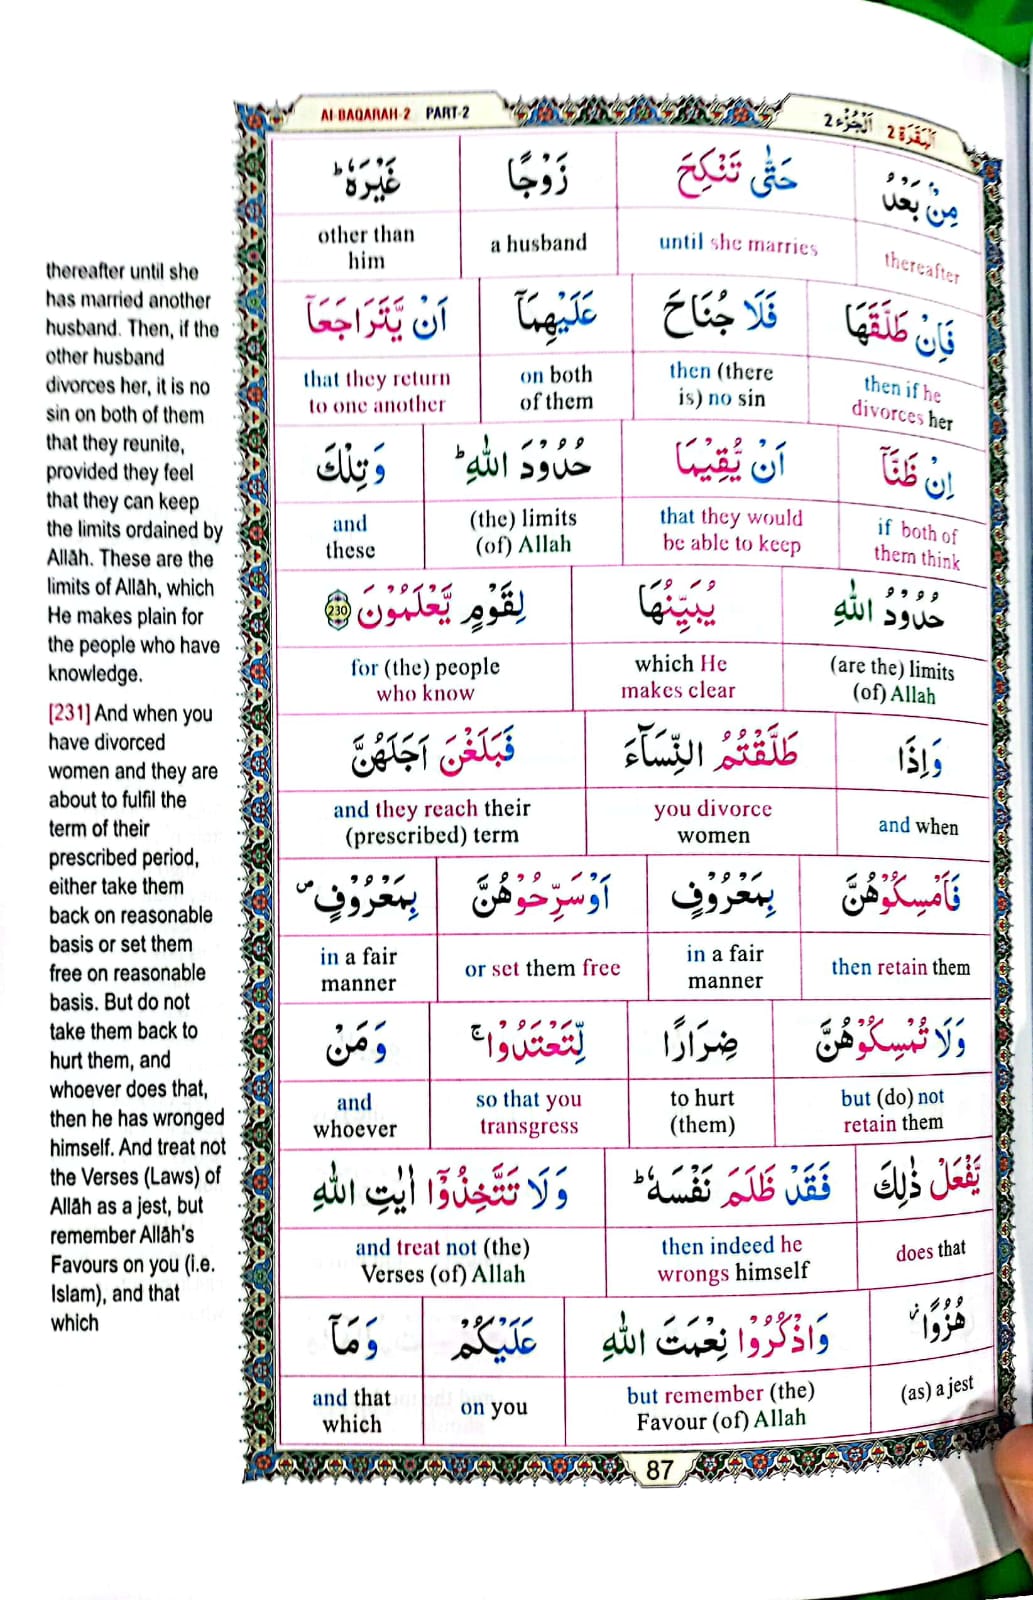 Al-BAQARAH-2 PART-2
اَلْجُزْء 2 اَلْبَقَرَة 2
مِنْۢ بَعْدُ حَتّٰى تَنْكِحَ زَوْجًا غَيْرَهٗ ؕ
thereafter until she marries a husband other than him
فَاِنْ طَلَّقَهَا فَلَا جُنَاحَ عَلَيْهِمَاۤ اَنْ يَّتَرَاجَعَاۤ
then if he divorces her then (there is) no sin on both of them that they return to one another
اِنْ ظَنَّاۤ اَنْ يُّقِيْمَا حُدُوْدَ اللّٰهِ ؕ وَتِلْكَ
if both of them think that they would be able to keep (the) limits (of) Allah and these
حُدُوْدُ اللّٰهِ يُبَيِّنُهَا لِقَوْمٍ يَّعْلَمُوْنَ 230
(are the) limits (of) Allah which He makes clear for (the) people who know
وَاِذَا طَلَّقْتُمُ النِّسَآءَ فَبَلَغْنَ اَجَلَهُنَّ
and when you divorce women and they reach their (prescribed) term
فَاَمْسِكُوْهُنَّ بِمَعْرُوْفٍ اَوْ سَرِّحُوْهُنَّ بِمَعْرُوْفٍ ۪
then retain them in a fair manner or set them free in a fair manner
وَلَا تُمْسِكُوْهُنَّ ضِرَارًا لِّتَعْتَدُوْا ۚ وَمَنْ
but (do) not retain them to hurt (them) so that you transgress and whoever
يَّفْعَلْ ذٰلِكَ فَقَدْ ظَلَمَ نَفْسَهٗ ؕ وَلَا تَتَّخِذُوْۤا اٰيٰتِ اللّٰهِ
does that then indeed he wrongs himself and treat not (the) Verses (of) Allah
هُزُوًا ۫ وَاذْكُرُوْا نِعْمَتَ اللّٰهِ عَلَيْكُمْ وَمَاۤ
(as) a jest but remember (the) Favour (of) Allah on you and that which
thereafter until she
has married another
husband. Then, if the
other husband
divorces her, it is no
sin on both of them
that they reunite,
provided they feel
that they can keep
the limits ordained by
Allâh. These are the
limits of Allâh, which
He makes plain for
the people who have
knowledge.
[231] And when you
have divorced
women and they are
about to fulfil the
term of their
prescribed period,
either take them
back on reasonable
basis or set them
free on reasonable
basis. But do not
take them back to
hurt them, and
whoever does that,
then he has wronged
himself. And treat not
the Verses (Laws) of
Allâh as a jest, but
remember Allâh's
Favours on you (i.e.
Islam), and that
which
87